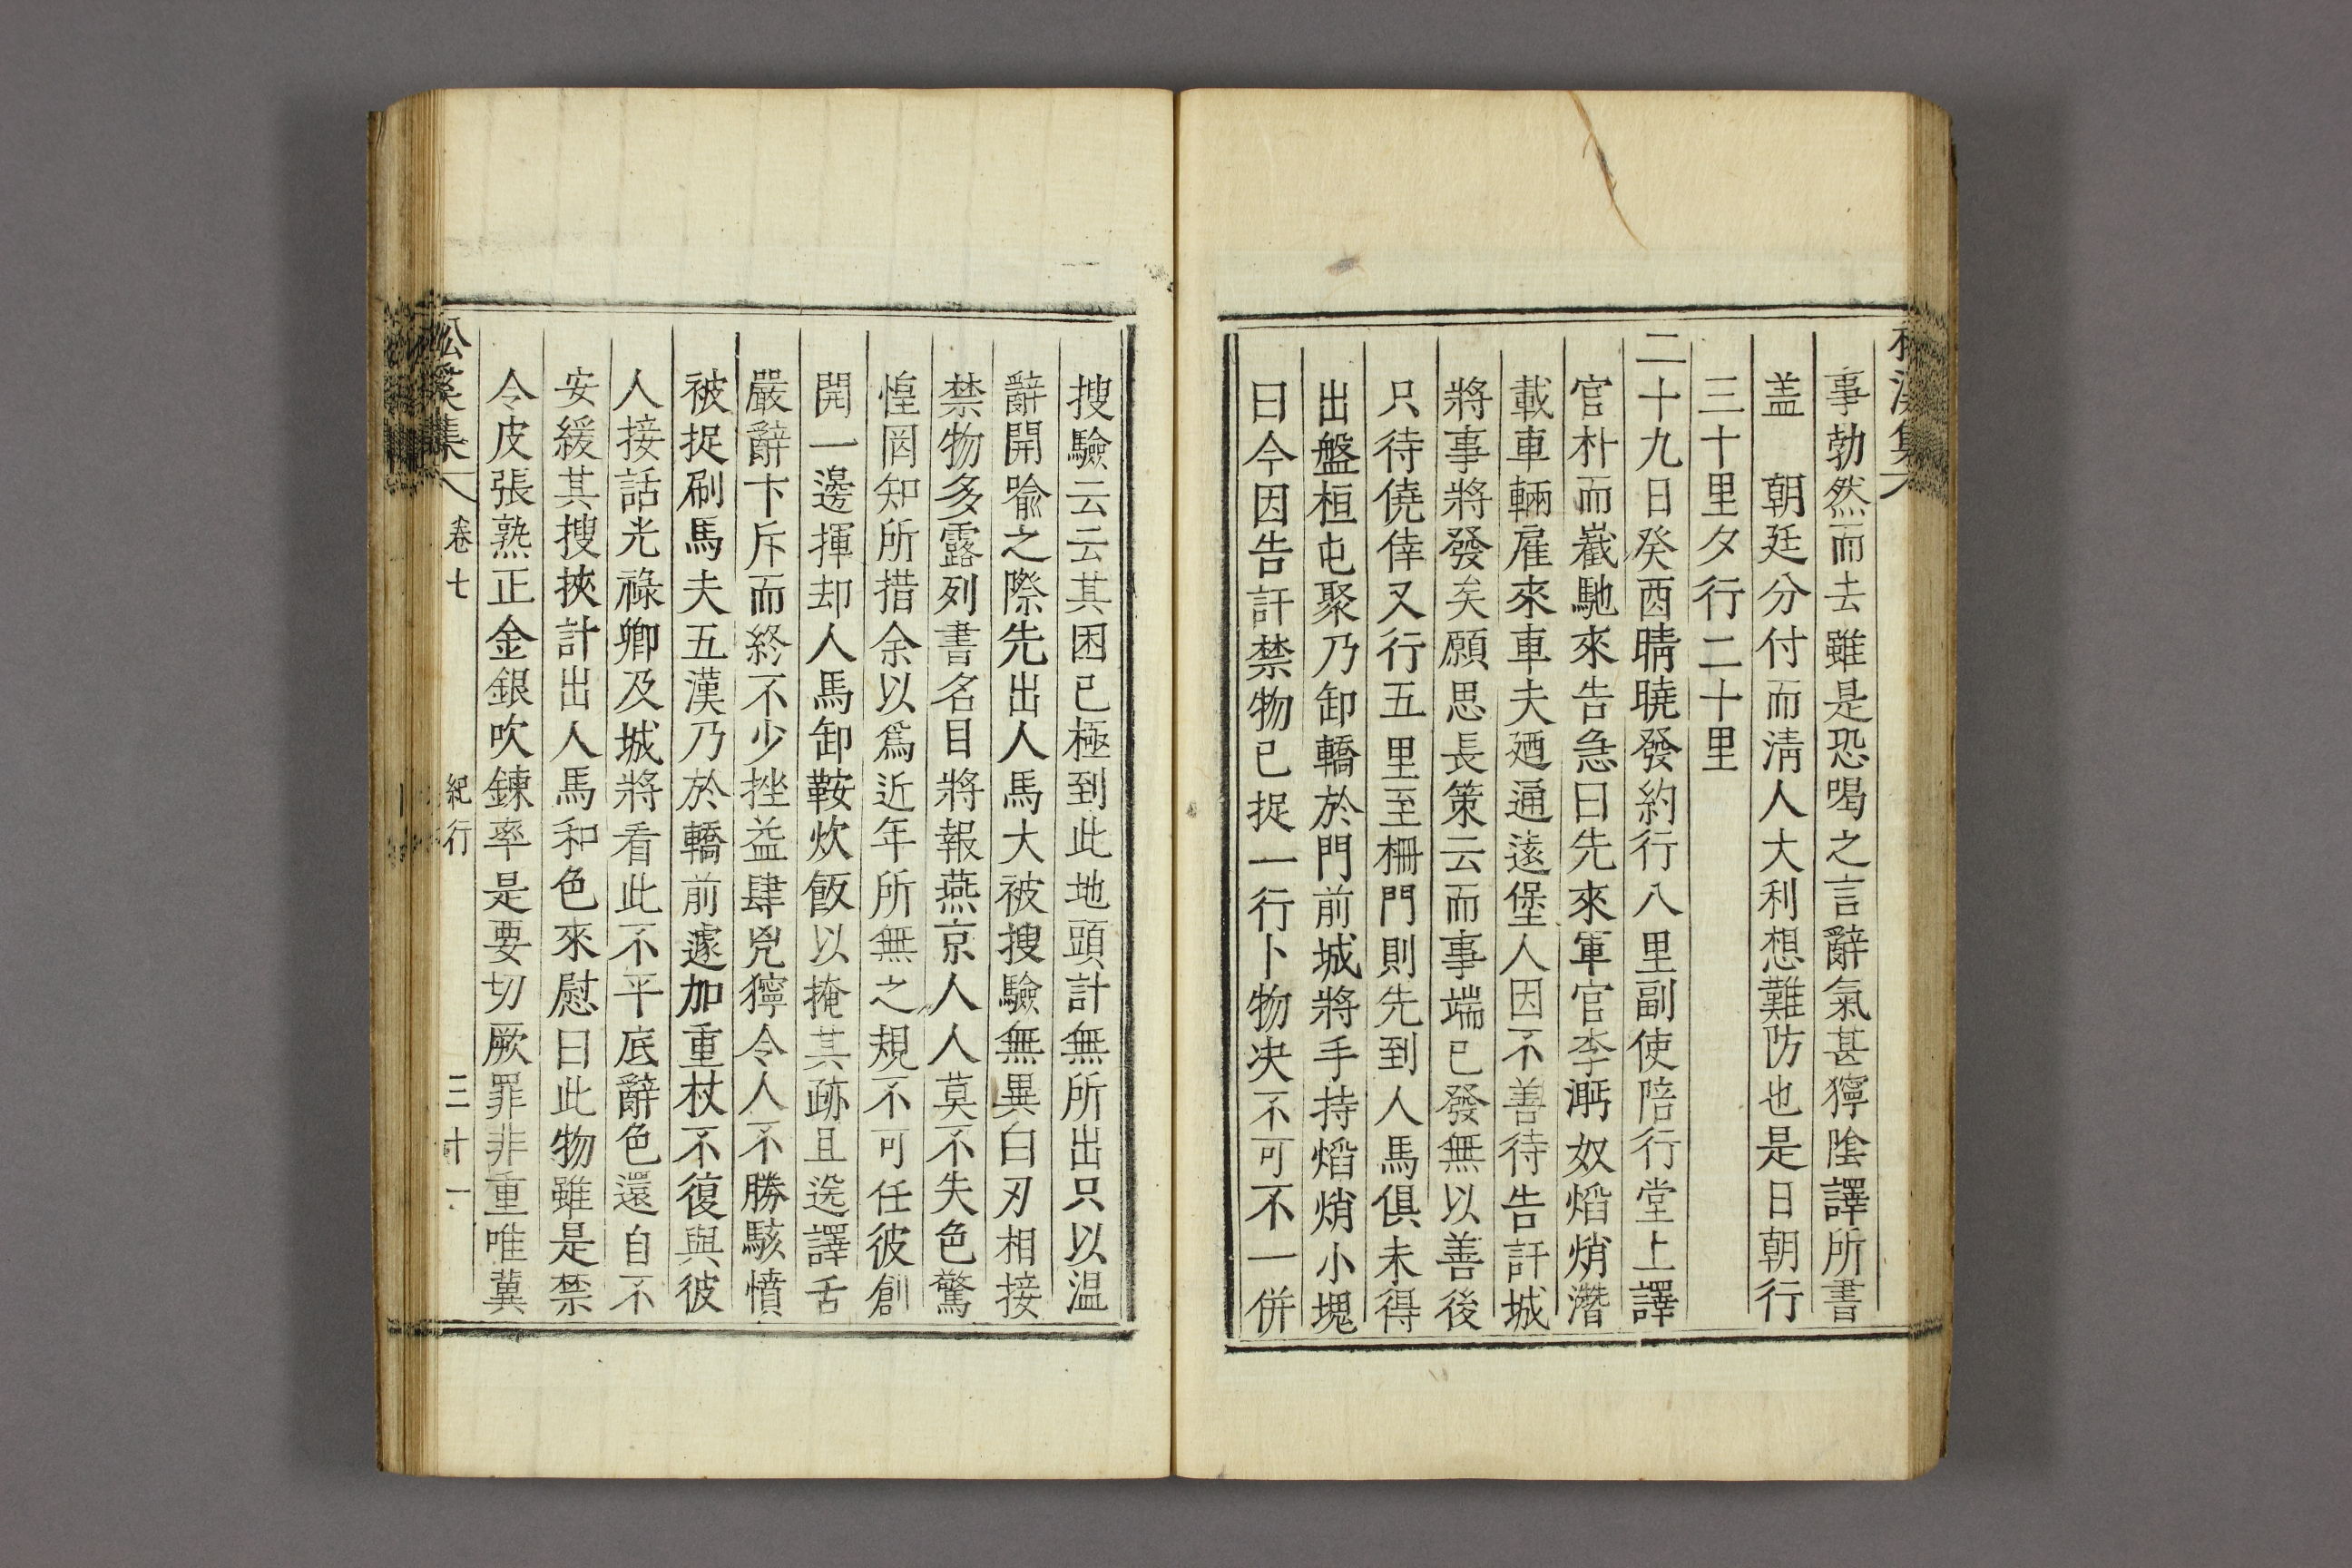 事勃然而去雖是恐喝之言辭氣甚獰陰譯所書
盖　朝廷分付而淸人大利想難防也是日朝行
三十里夕行二十里
二十九日癸酉晴曉發約行八里副使陪行堂上譯
官朴而嶻馳來告急曰先來軍官李㴐奴熖焇潛
載車輛雇來車夫廼通遠堡人因不善待告訐城
將事將發矣願思長策云而事端已發無以善後
只待僥倖又行五里至柵門則先到人馬俱未得
出盤桓屯聚乃卸轎於門前城將手持熖焇小塊
曰今因告訐禁物已捉一行卜物决不可不一併
搜驗云云其困已極到此地頭計無所出只以温
辭開喩之際先出人馬大被搜驗無異白刃相接
禁物多露列書名目將報燕京人人莫不失色驚
惶罔知所措余以爲近年所無之規不可任彼創
開一邊揮却人馬卸鞍炊飯以掩其跡且選譯舌
嚴辭下斥而終不少挫益肆兇獰令人不勝駭憤
被捉刷馬夫五漢乃於轎前遽加重杖不復與彼
人接話光祿卿及城將看此不平底辭色還自不
安緩其搜挾計出人馬和色來慰曰此物雖是禁
令皮張熟正金銀吹鍊率是要切厥罪非重唯冀
松溪集　卷七　紀行　三十一